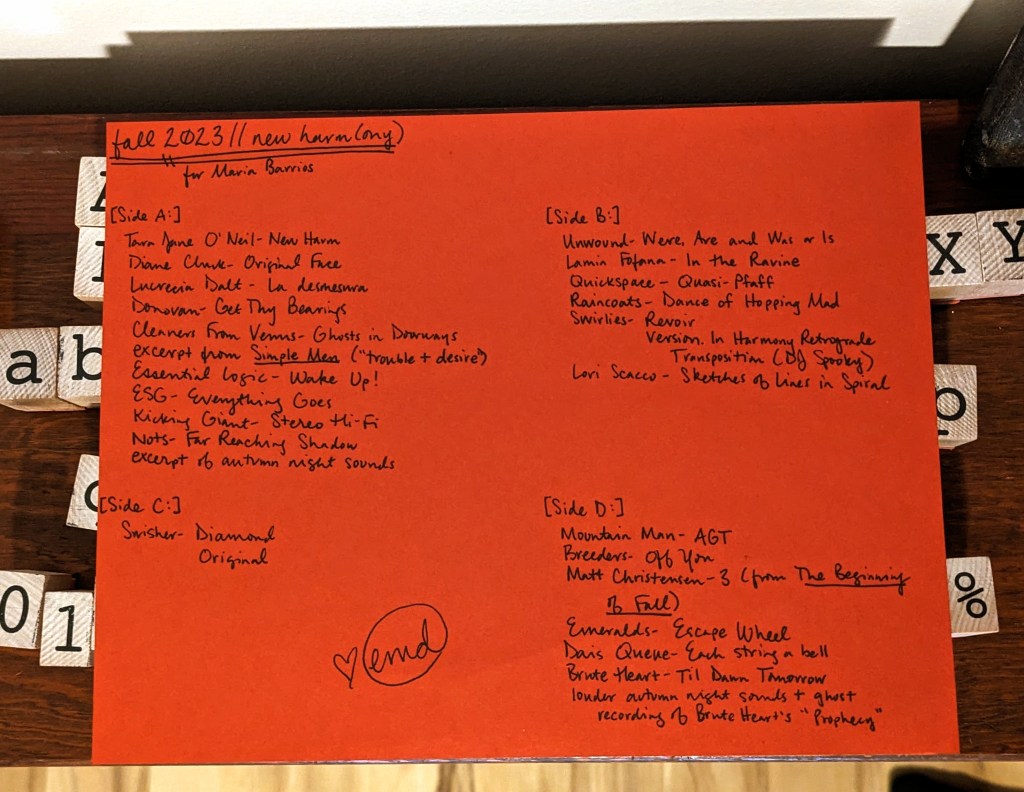 fall 2023 // new harm(ony)
for Maria Barrios
[Side A:]
Tara Jane O'Neil - New Harm
Diane Cluck - Original Face
Lucrecia Dalt - La desmesura
Donovan - Get Thy Bearings
Cleaners From Venus - Ghosts in Doorways
excerpt from Simple Men ("trouble + desire")
Essential Logic - Wake Up!
ESG - Everything Goes
Kicking Giant - Stereo Hi-Fi
Nots - Far Reaching Shadow
excerpt of autumn night sounds
[Side B:]
Unwound - Were, Are and Was or Is
Lamin Fofana - In the Ravine
Quickspace - Quasi-Pfaff
Raincoats - Dance of Hopping Mad
Swirlies - Revoir
Version. In Harmony Retrograde
Transposition (DJ Spooky)
Lori Scacco - Sketches of Lines in Spiral
[Side C:]
Swisher - Diamond
Original
[Side D:]
Mountain Man - AGT
Breeders - Off You
Matt Christensen - 3 (from The Beginning
of Fall)
Emeralds - Escape Wheel
Dais Queue - Each string a bell
Brute Heart - Til Dawn Tomorrow
louder autumn night sounds + ghost
recording of Brute Heart's "Prophecy"
♡ emd
a b
0 1
X Y
p
%